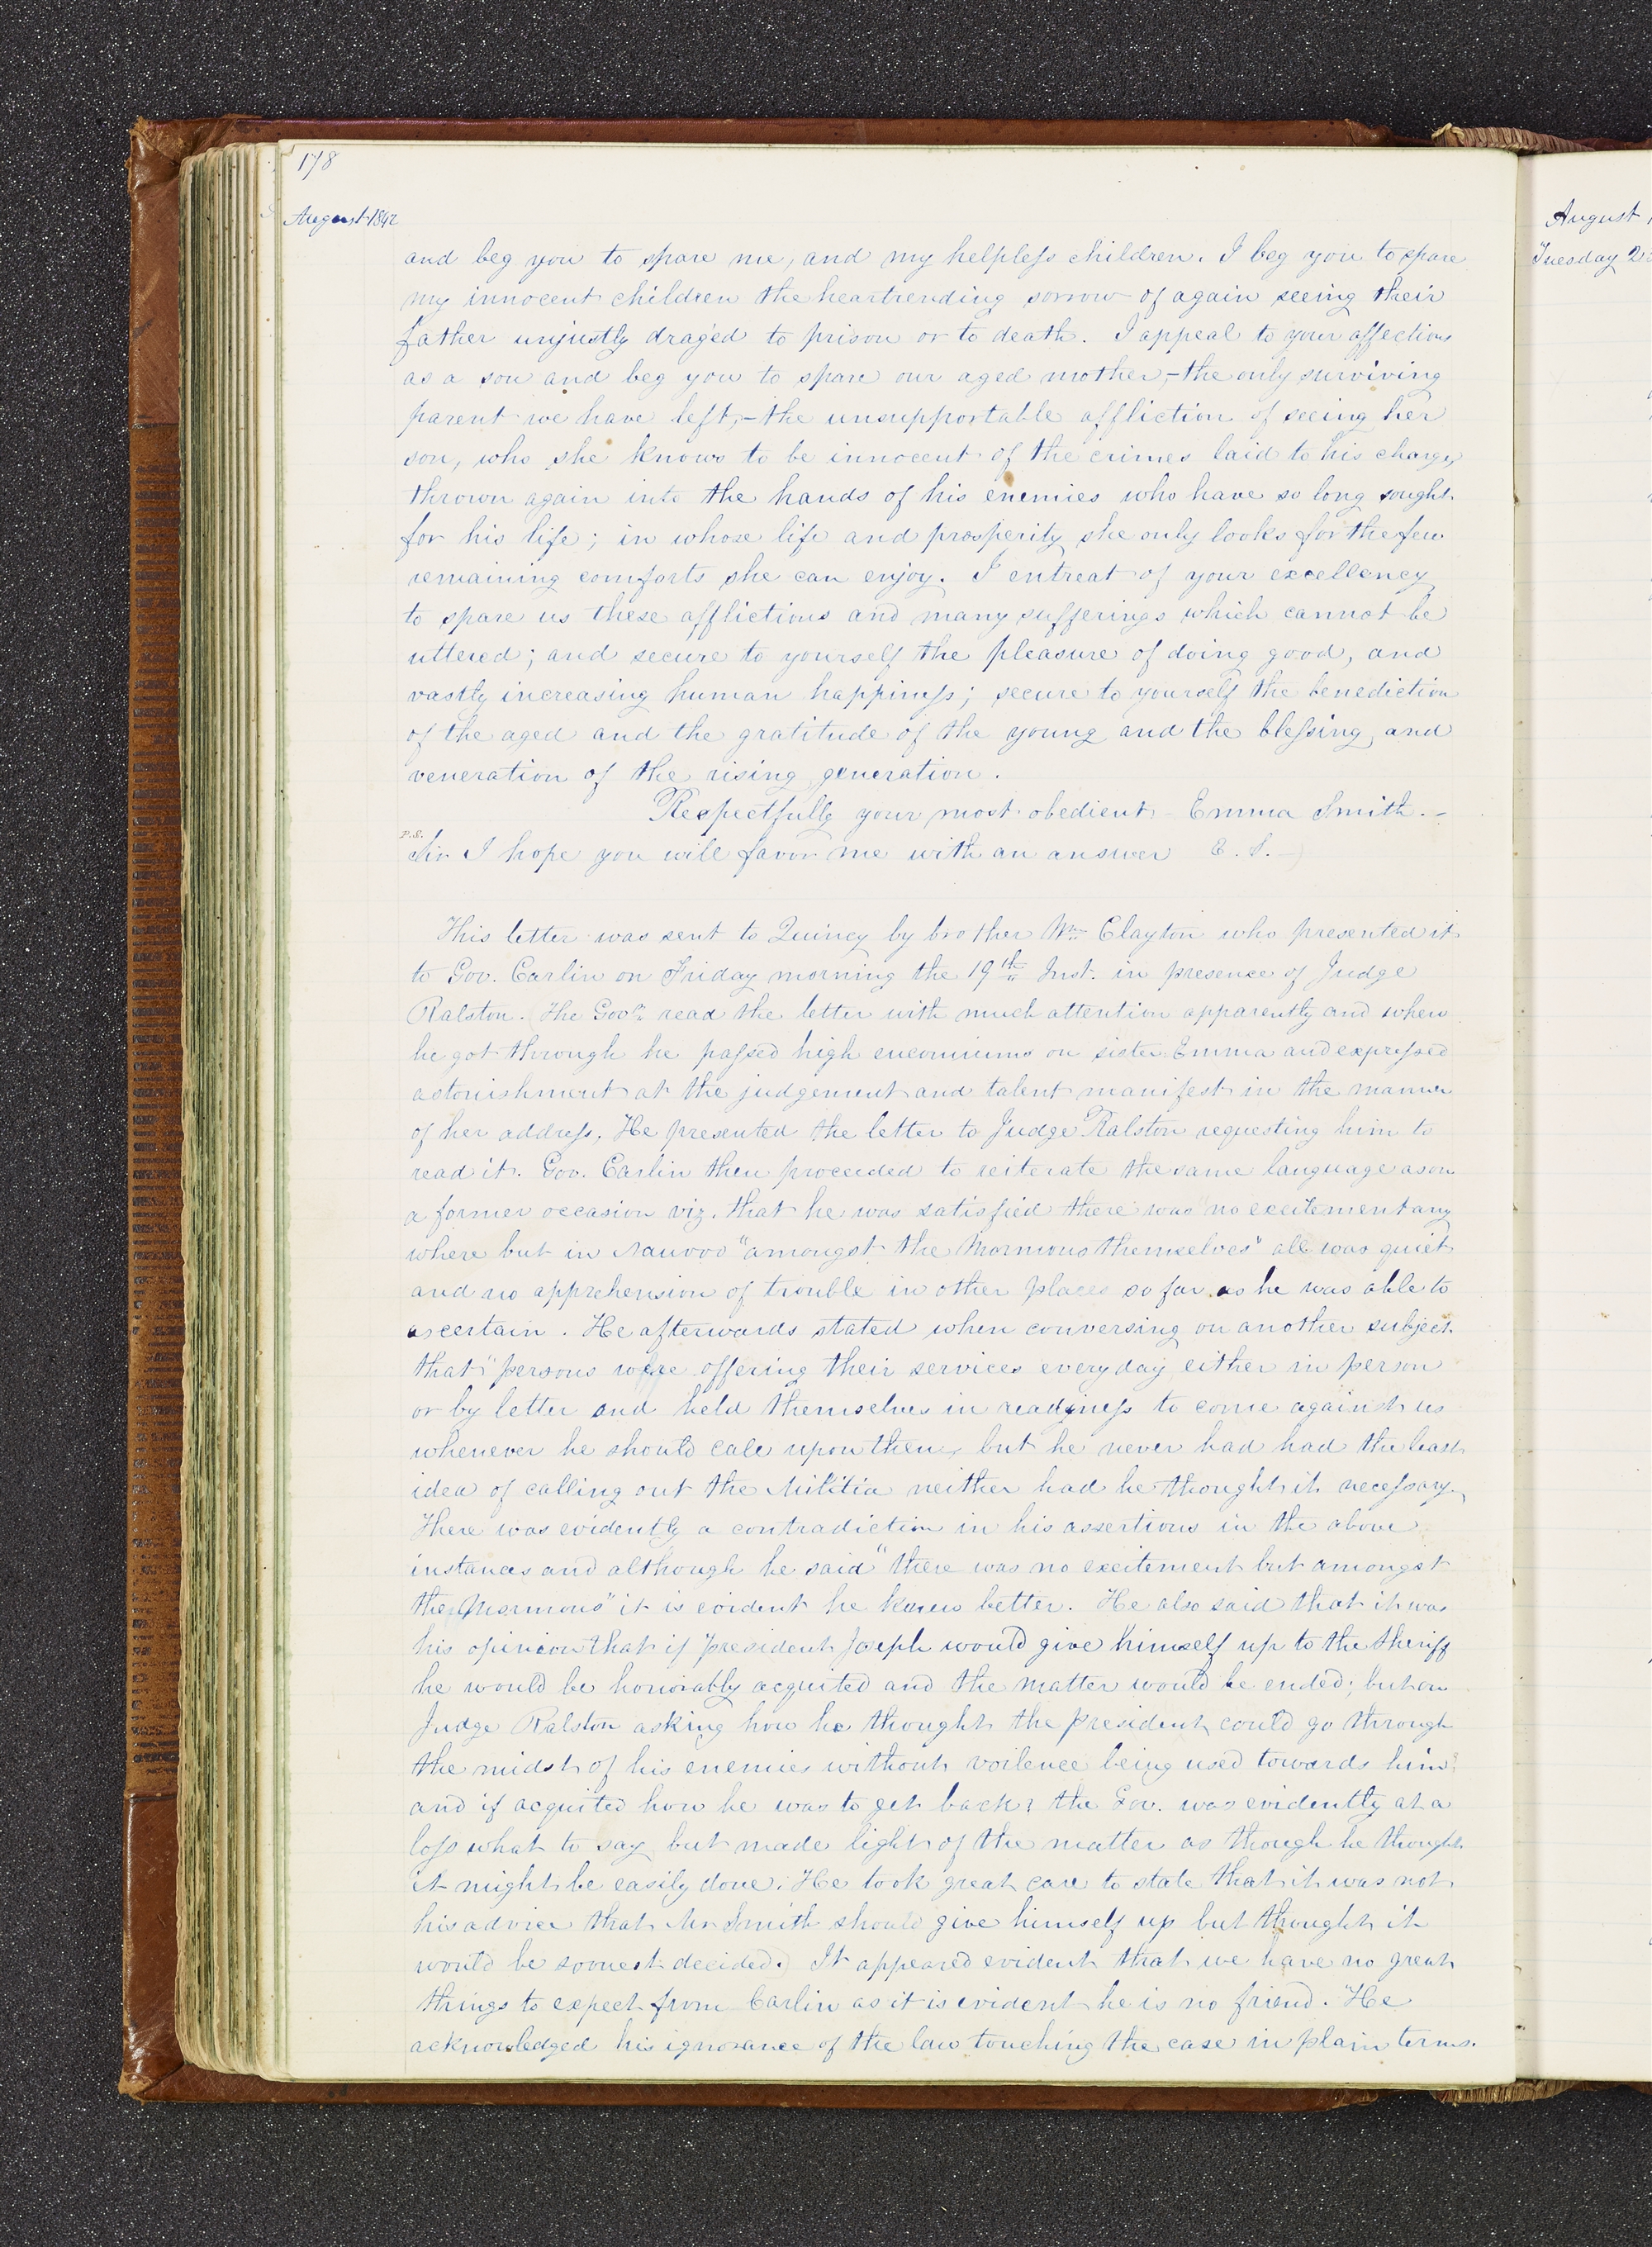 178
August 1842
and beg you to spare me, and my helpless children. I beg you to spare
my innocent children the heartrending sorrow of again seeing their
father unjustly draged to prison or to death. I appeal to your affections
as a son and beg you to spare our aged mother,—the only surviving
parent we have left,—the unsupportable affliction of seeing her
son, who she knows to be innocent of the crimes laid to his charge,
thrown again into the hands of his enemies who have so long sought
for his life; in whose life and prosperity she only looks for the few
remaining comforts she can enjoy. I entreat of your excellency
to spare us these afflictions and many sufferings which cannot be
uttered; and secure to yourself the pleasure of doing good, and
vastly increasing human happiness; secure to yourself the benediction
of the aged and the gratitude of the young and the blessing and
veneration of the rising generation.
Respectfully your most obedient— Emma Smith.—
P.S.
Sir I hope you will favor me with an answer E. S.—)
This letter was sent to Quincy by brother Wm Clayton who presented it
to Gov. Carlin on Friday morning the 19th Inst. in presence of Judge
Ralston. (The Govr. read the letter with much attention apparently and when
he got through he passed high encomiums on sister Emma and expressed
astonishment at the judgement and talent manifest in the manner
of her address. He presented the letter to Judge Ralston requesting him to
read it. Gov. Carlin then proceeded to reiterate the same language as on
a former occasion viz. that he was satisfied there was "no excitement any
where but in Nauvoo "amongst the Mormons themselves" all was quiet
and no apprehension of trouble in other places so far as he was able to
ascertain. He afterwards stated when conversing on another subject
that "persons were offering their services every day either in person
or by letter and held themselves in readiness to come against us
whenever he should call upon them, but he never had had the least
idea of calling out the Militia neither had he thought it necessary.
There was evidently a contradiction in his assertions in the above
instances and although he said "there was no excitement but amongst
the Mormons" it is evident he knew better. He also said that it was
his opinion that if president Joseph would give himself up to the Sheriff
he would be honorably acquited and the matter would be ended; but on
Judge Ralston asking how he thought the president could go through
the midst of his enemies without voilence being used towards him?
and if acquited how he was to get back? the Gov. was evidently at a
loss what to say but made light of the matter as though he thought
it might be easily done. He took great care to state that it was not
his advice that Mr Smith should give himself up but thought it
would be soonest decided.) It appeared evident that we have no great
things to expect from Carlin as it is evident he is no friend. He
acknowledged his ignorance of the law touching the case in plain terms.
August
Tuesday